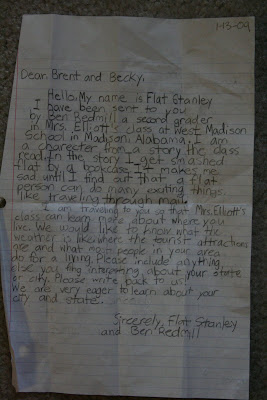 1-13-09
Dear Brent and Becky,
Hello. My name is Flat Stanley
I have been sent to you
by Ben Redmill a second grader
in Mrs. Elliott's class at West Madison
School in Madison Alabama. I am
a charecter from a story the class
read. In the story I get smashed
flat by a bookcase. It makes me
sad until I find out that a flat
person can do many exiting things
like traveling through mail.
I am traveling to you so that Mrs. Elliott's
class can learn more about where you
live. We would like to know what the
weather is like, where the tourist attractions
are and what most people in your area
do for a living. Please include anything
else you find interesting about your state
or city. Please write back to us!
We are very eager to learn about your
city and state.
Sincerely, Flat Stanley
and Ben Redmill